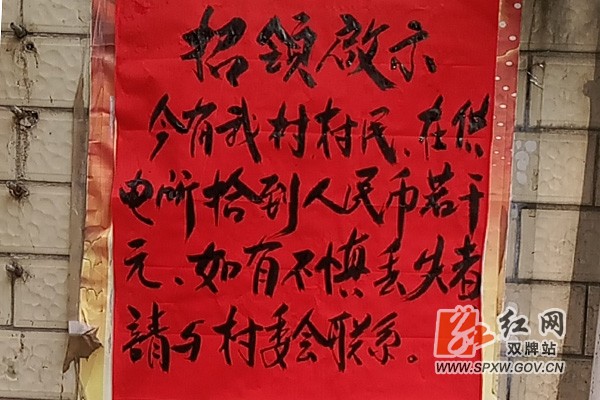 招领啟示
今有我村村民、在供
电所拾到人民币若干
元、如有不慎丢失者
請与村委会联系。
红网
双牌站
WWW.SPXW.GOV.CN